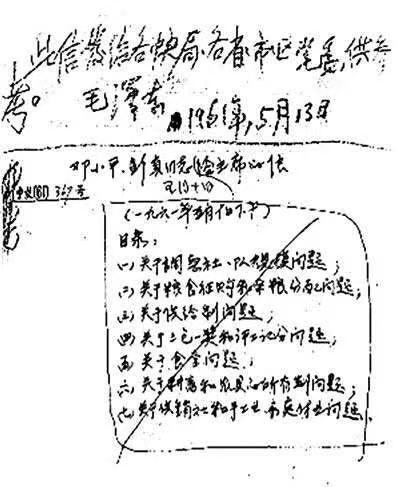 此信发给各中央局、各省市区党委，供参
考。
毛泽东
1961年，5月13日
邓小平、彭真同志给主席的信
5月10日
中发(61) 367号
(一九六一年五月十日下午)
目录：
(一)关于调整社、队规模问题；
(二)关于粮食征购和余粮分配问题；
(三)关于供给制问题；
(四)关于三包一奖和评工记分问题；
(五)关于食堂问题；
(六)关于耕畜和农具的所有制问题；
(七)关于供销社和手工业、家庭付业问题。